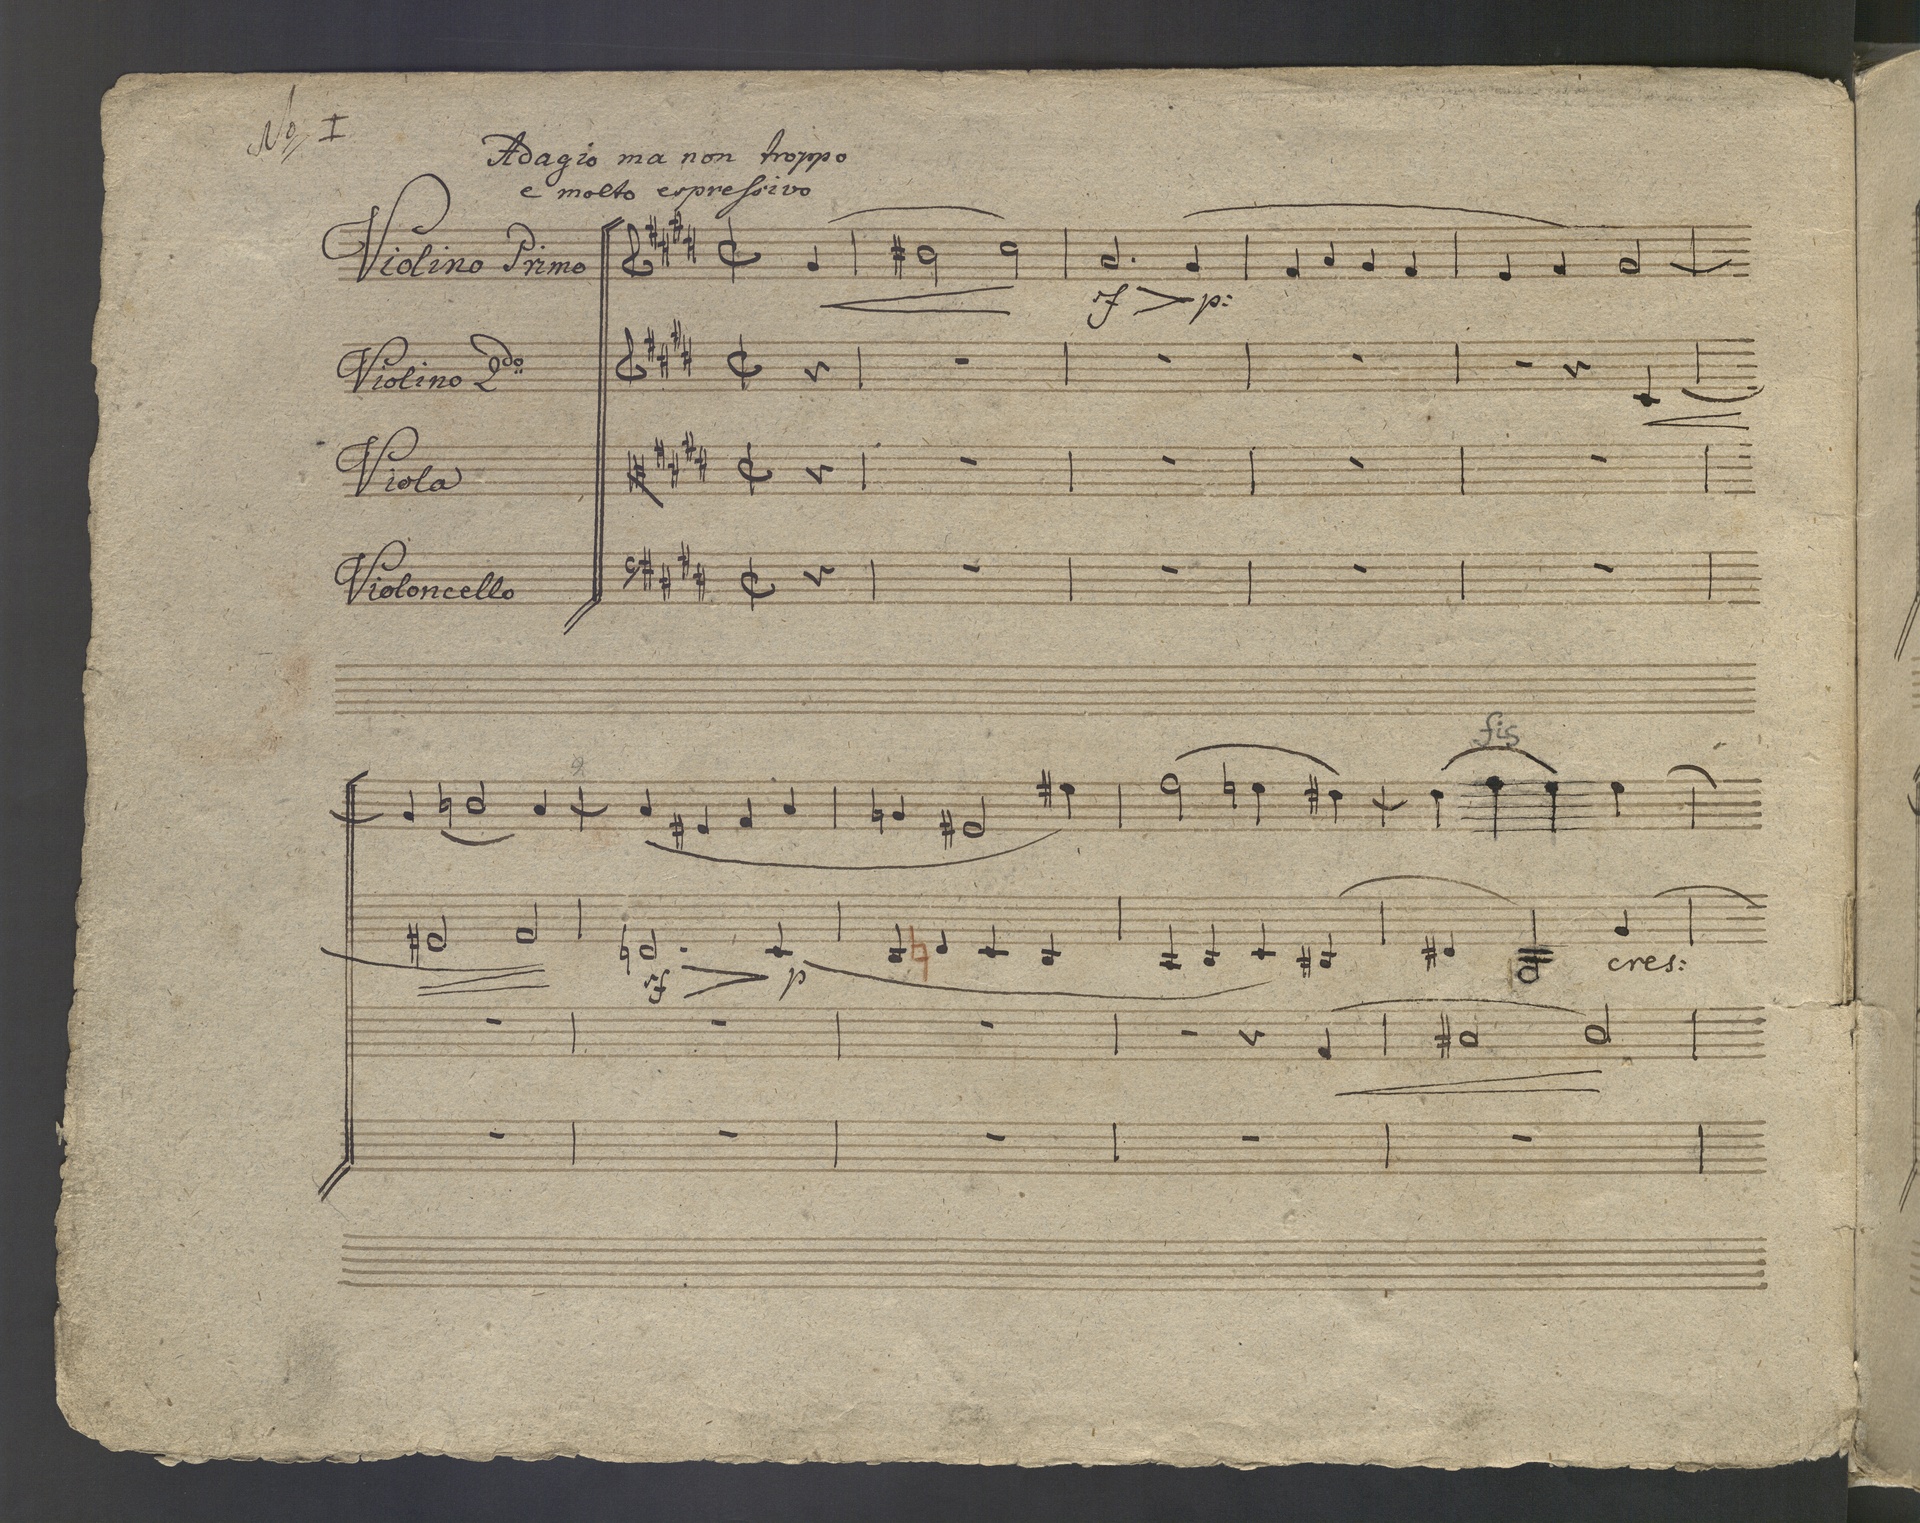 No I
Adagio ma non troppo
e molto espressivo
Violino Primo
sf p:
Violino 2do
Viola
Violoncello
fis
sf p cres: